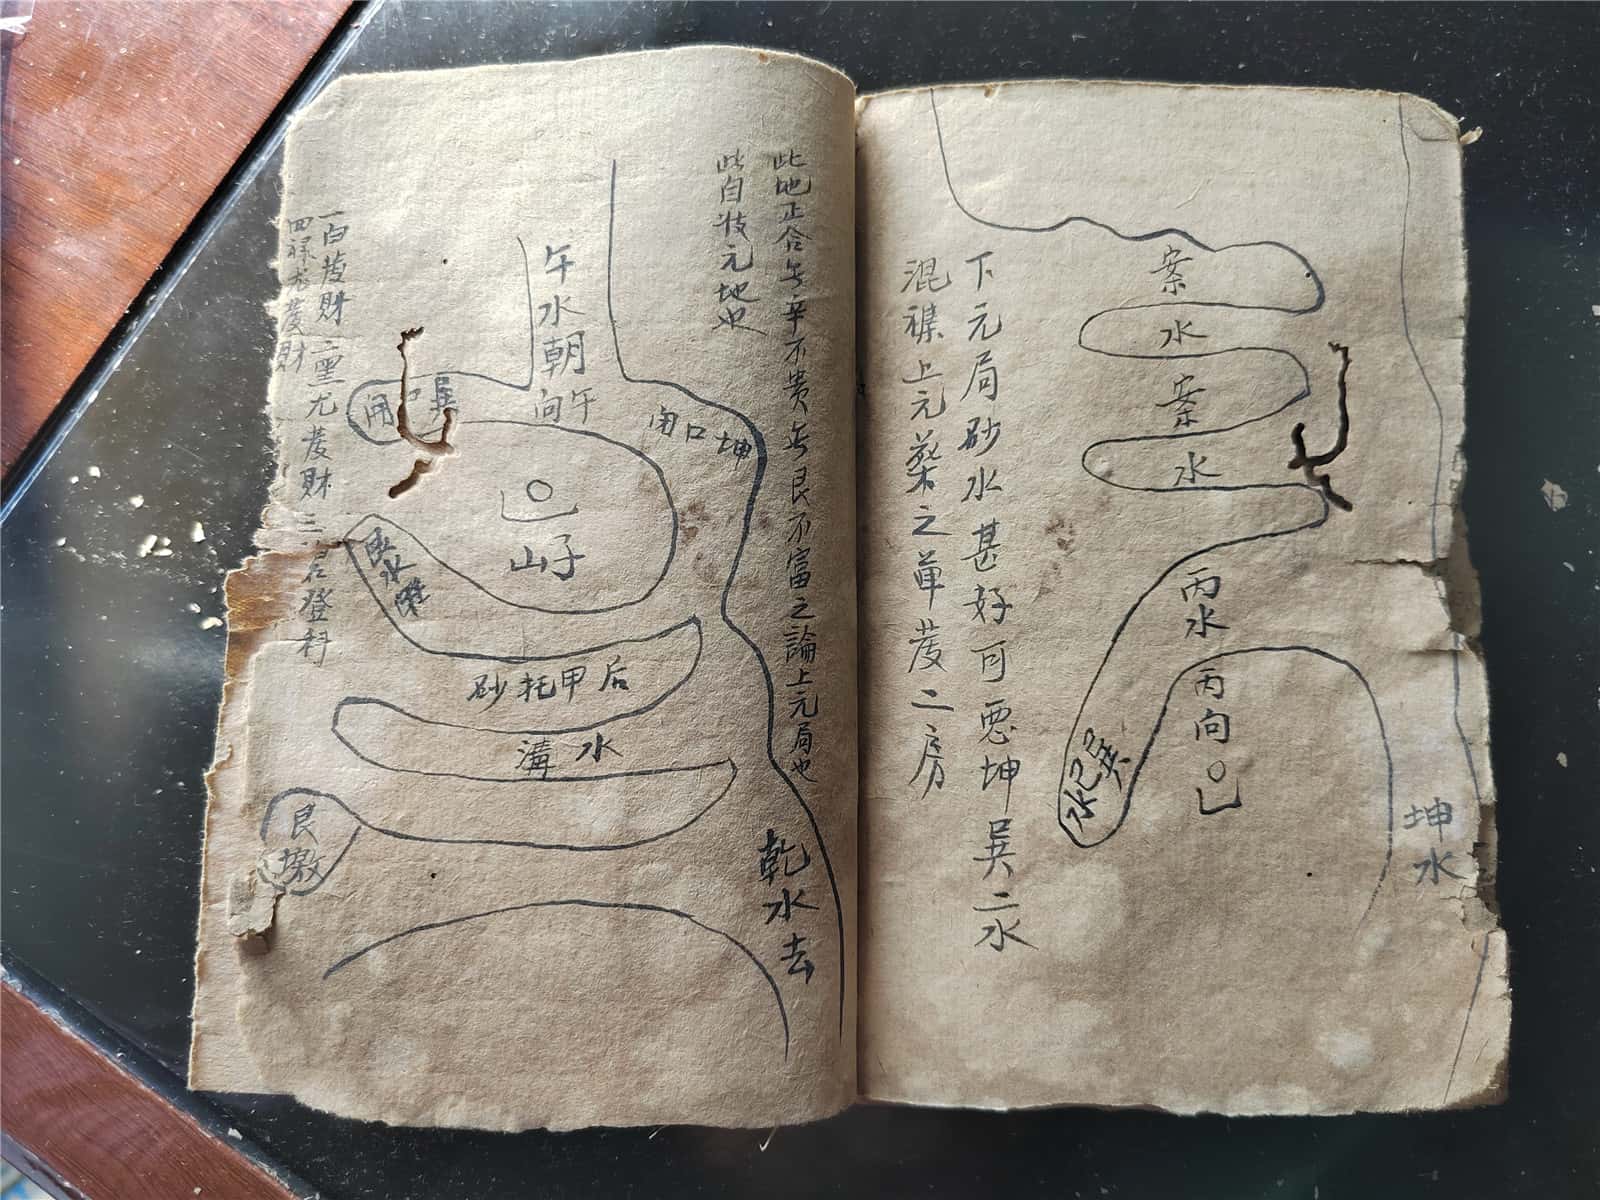 下元局砂水甚好可恶坤巽二水
混襍上元葬之葷發二房
案
水
案
水
丙水
丙向
巽巳水
坤水
此地正合無辛不贵無艮不富之論上元局也
此自技元地也
午水朝
午向
坤口
巽
子山
后甲托砂
水溝
艮墩
乾水去
一白發財二黑尤發財三合登科
四禄尤發財